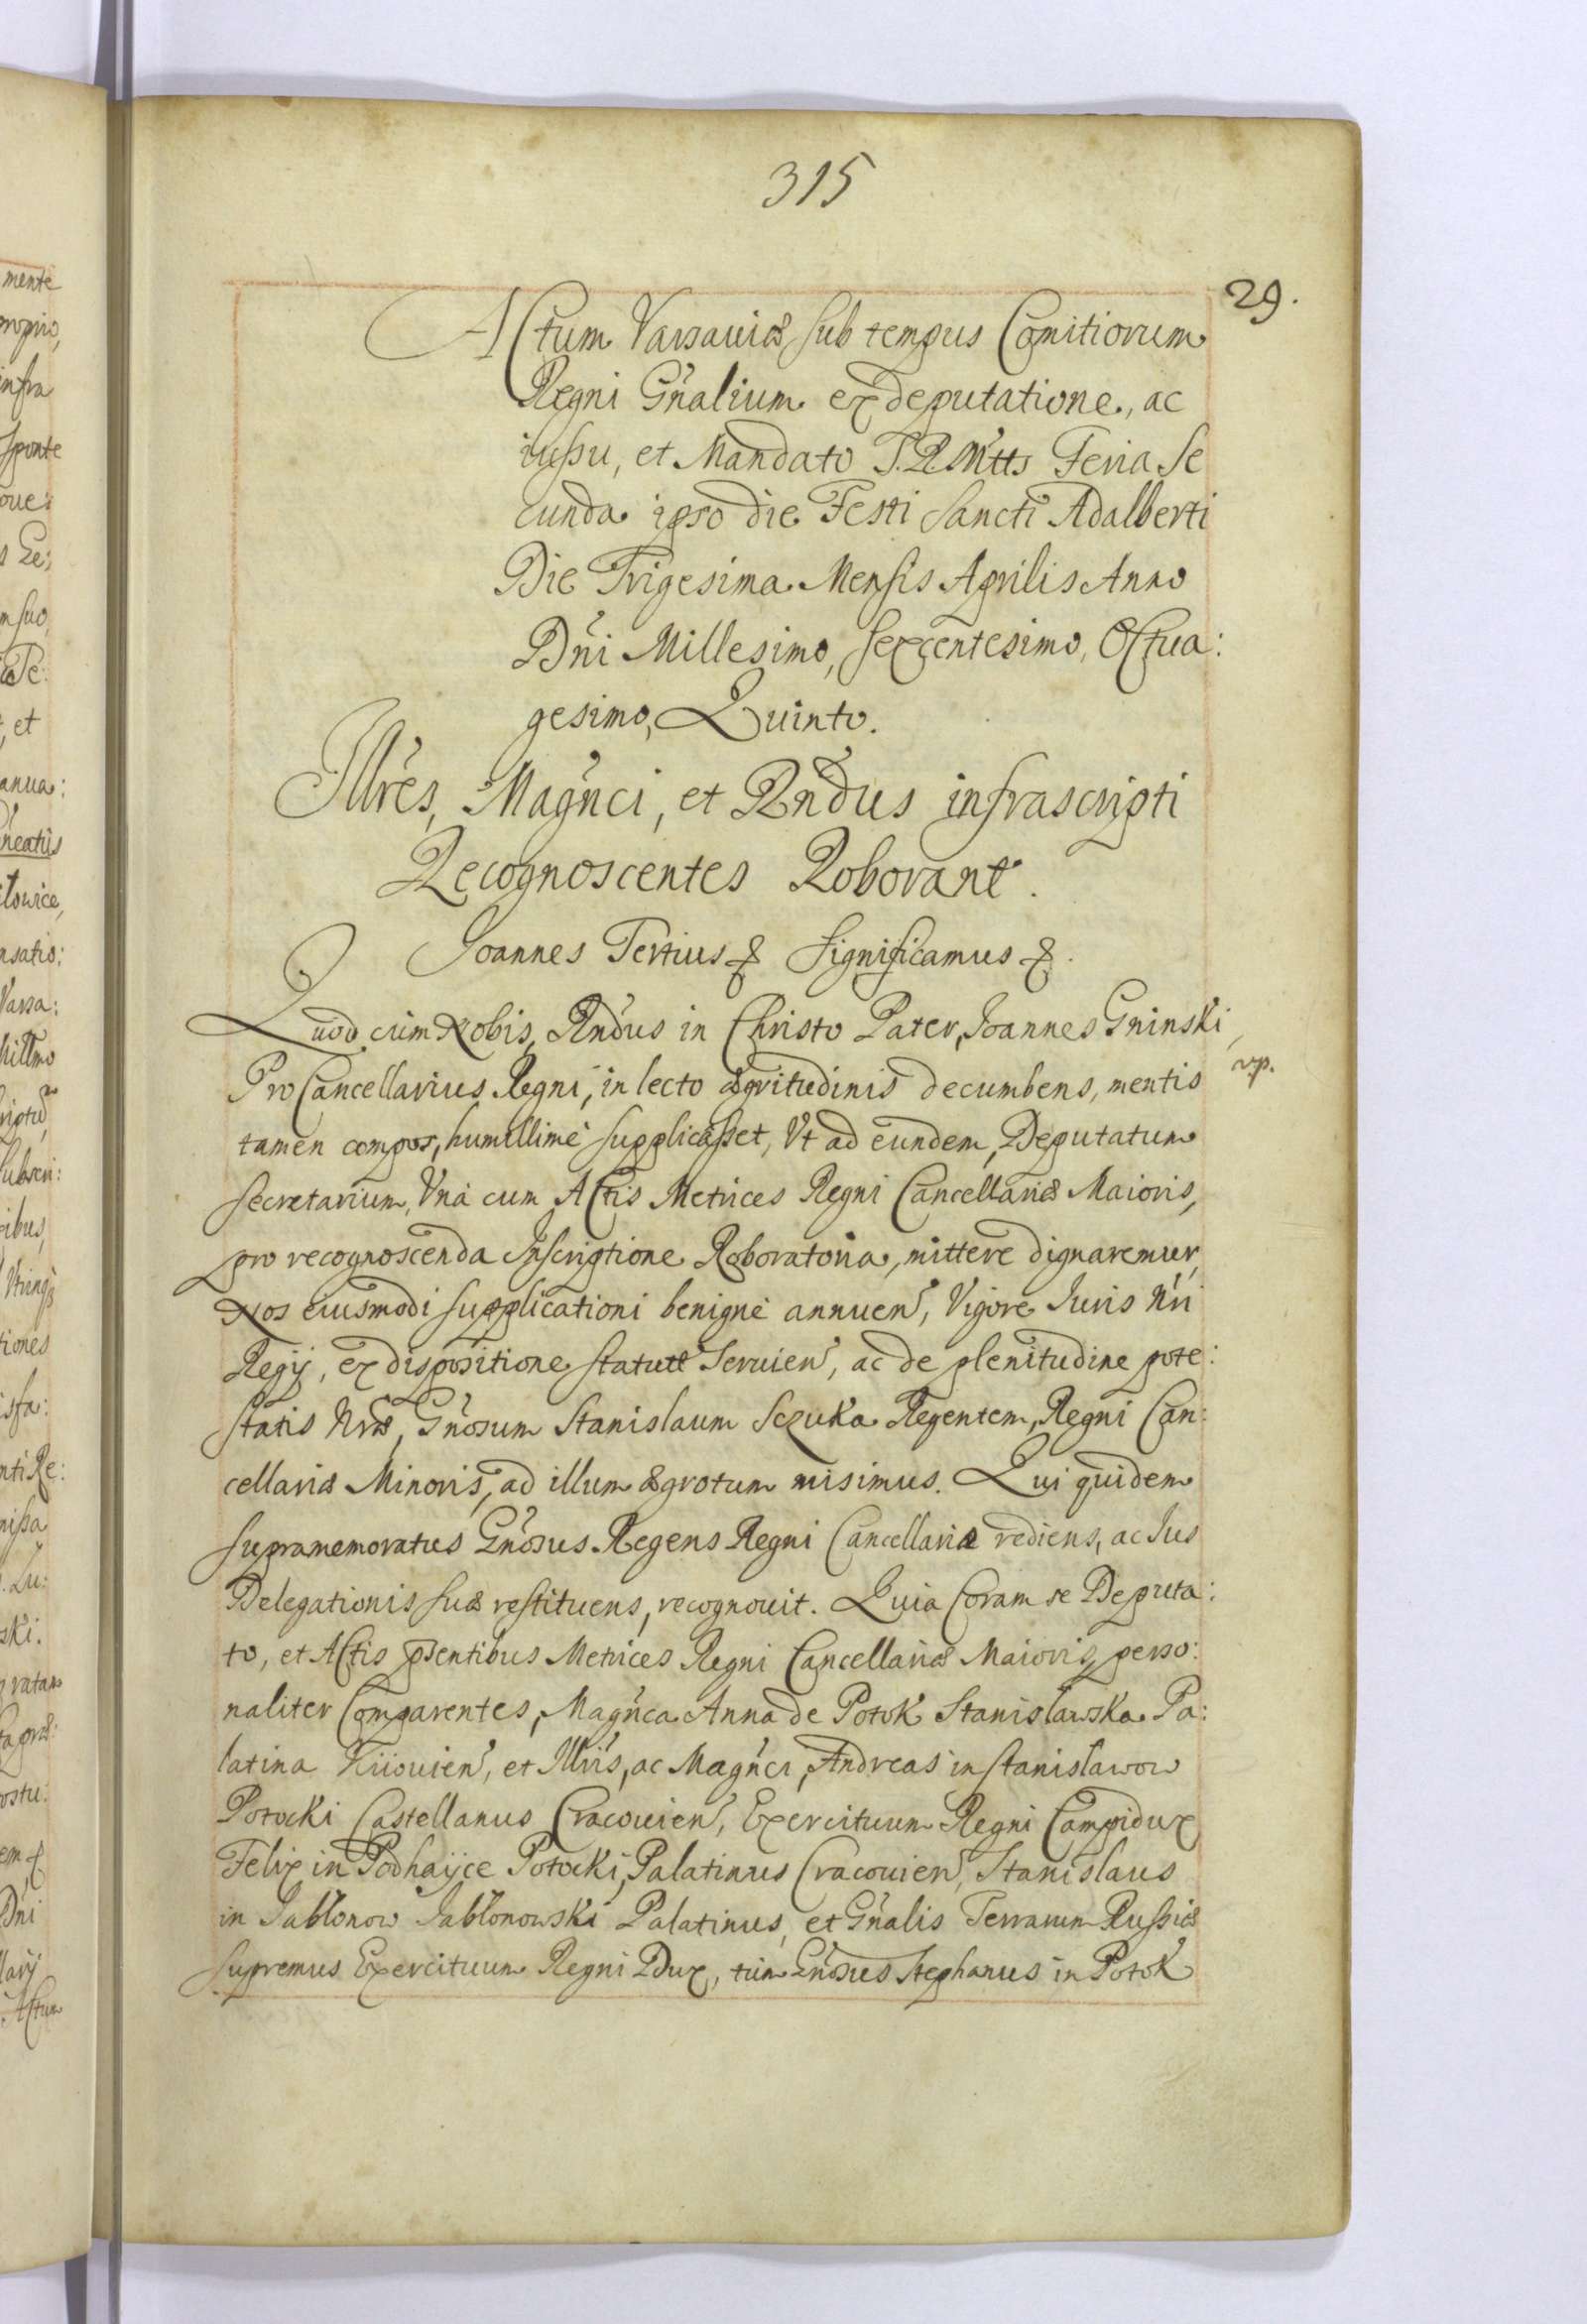 315
29.
Actum Varsauiæ sub tempus Comitiorum
Regni Gñalium ex deputatione, ac
iussu, et Mandato S. R. Mttis Feria Se
cunda ipso die Festi Sancti Adalberti
Die Trigesima Mensis Aprilis Anno
Dñi Millesimo, Sexcentesimo, Octua:
gesimo, Quinto.
Illres, Magñci, et Rndus infrascripti
Recognoscentes Roborant.
Joannes Tertius & Significamus &.
Quod cum Nobis, Rndus in Christo Pater, Joannes Gninski,
ProCancellarius Regni, in lecto ægritudinis decumbens, mentis
tamen compos, humillimè supplicasset, Vt ad eundem, Deputatum
Secretarium, Vnà cum Actis Metrices Regni Cancellariæ Maioris,
pro recognoscenda Inscriptione Roboratoria, mittere dignaremur,
Nos eiusmodi supplicationi benignè annuen, Vigore Iuris Nri
Regij, ex dispositione statut Seruien, ac de plenitudine pote:
statis Nræ, Gñosum Stanislaum Sczuka Regentem, Regni Can:
cellariæ Minoris, ad illum ægrotum misimus. Qui quidem
supramemoratus Gñosus Regens Regni Cancellariæ rediens, ac Ius
Delegationis suæ restituens, recognouit. Quia Coram se Deputa:
to, et Actis psentibus Metrices Regni Cancellariæ Maioris, perso:
naliter Comparentes, Magñca Anna de Potok Stanisławska Pa:
latina Kiiouien, et Illris, ac Magñci, Andreas in Stanisławow
Potocki Castellanus Cracouien, Exercituum Regni Campidux
Felix in Podhayce Potocki, Palatinus Cracouien, Stanislaus
in Jabłonow Jabłonowski Palatinus, et Gñalis Terrarum Russiæ
Supremus Exercituum Regni Dux, tum Gñosus Stephanus in Potok